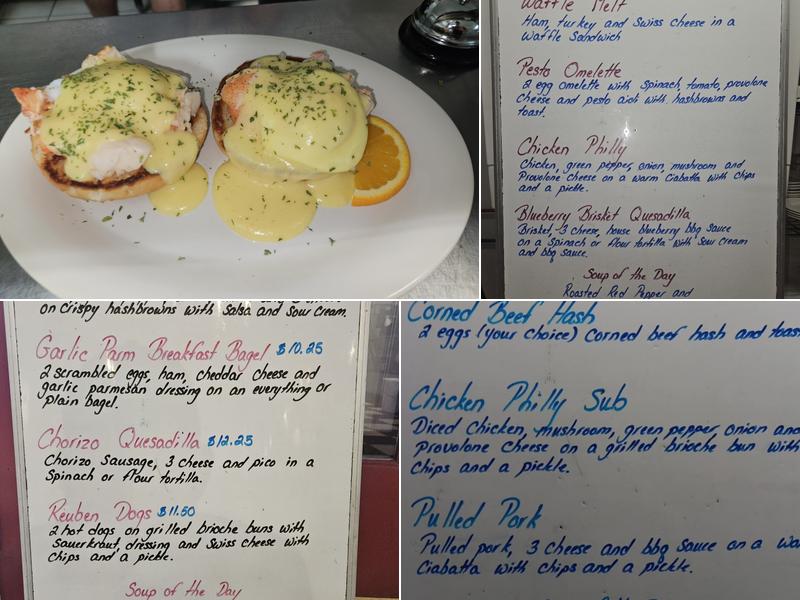 Waffle Melt
Ham, turkey and Swiss cheese in a
Waffle Sandwich
Pesto Omelette
2 egg omelette with Spinach, tomato, provolone
Cheese and pesto aioli with hashbrowns and
toast.
Chicken Philly
Chicken, green pepper, onion, mushroom and
Provolone cheese on a warm Ciabatta with chips
and a pickle.
Blueberry Brisket Quesadilla
Brisket, 3 cheese, house blueberry bbq sauce
on a Spinach or flour tortilla with Sour cream
and bbq sauce.
Soup of the Day
Roasted Red Pepper and
on crispy hashbrowns with Salsa and Sour cream.
Garlic Parm Breakfast Bagel $10.25
2 scrambled eggs, ham, cheddar cheese and
garlic parmesan dressing on an everything or
Plain bagel.
Chorizo Quesadilla $12.25
Chorizo Sausage, 3 cheese and pico in a
Spinach or flour tortilla.
Reuben Dogs $11.50
2 hot dogs on grilled brioche buns with
Sauerkraut, dressing and Swiss cheese with
chips and a pickle.
Soup of the Day
Corned Beef Hash
2 eggs (your choice) Corned beef hash and toas
Chicken Philly Sub
Diced Chicken, mushroom, green pepper, onion and
Provolone Cheese on a grilled brioche bun with
Chips and a pickle.
Pulled Pork
Pulled pork, 3 cheese and bbq sauce on a wa
Ciabatta with chips and a pickle.